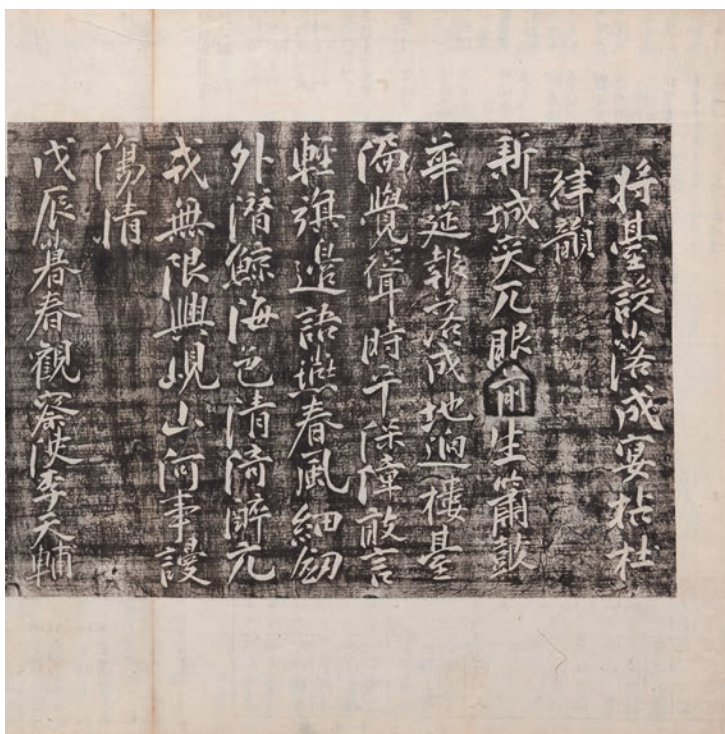 將臺設落成宴拈杜
律韻
新城突兀眼前生簫鼓
華筵報落成地迥樓臺
偏覺聳時平保障敢言
輕旗邊語燕春風細劒
外潛鯨海色淸倚醉元
戎無限興峴山何事謾
傷情
戊辰暮春觀察使李天輔